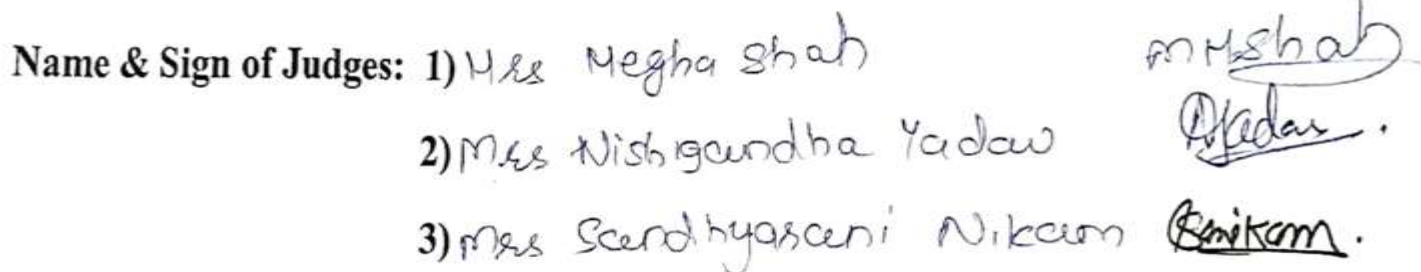 Name & Sign of Judges: 1) Mrs Megha Shah MMShah
2) Mrs Nishigandha Yadav
3) Mrs Sandhyarani Nikam